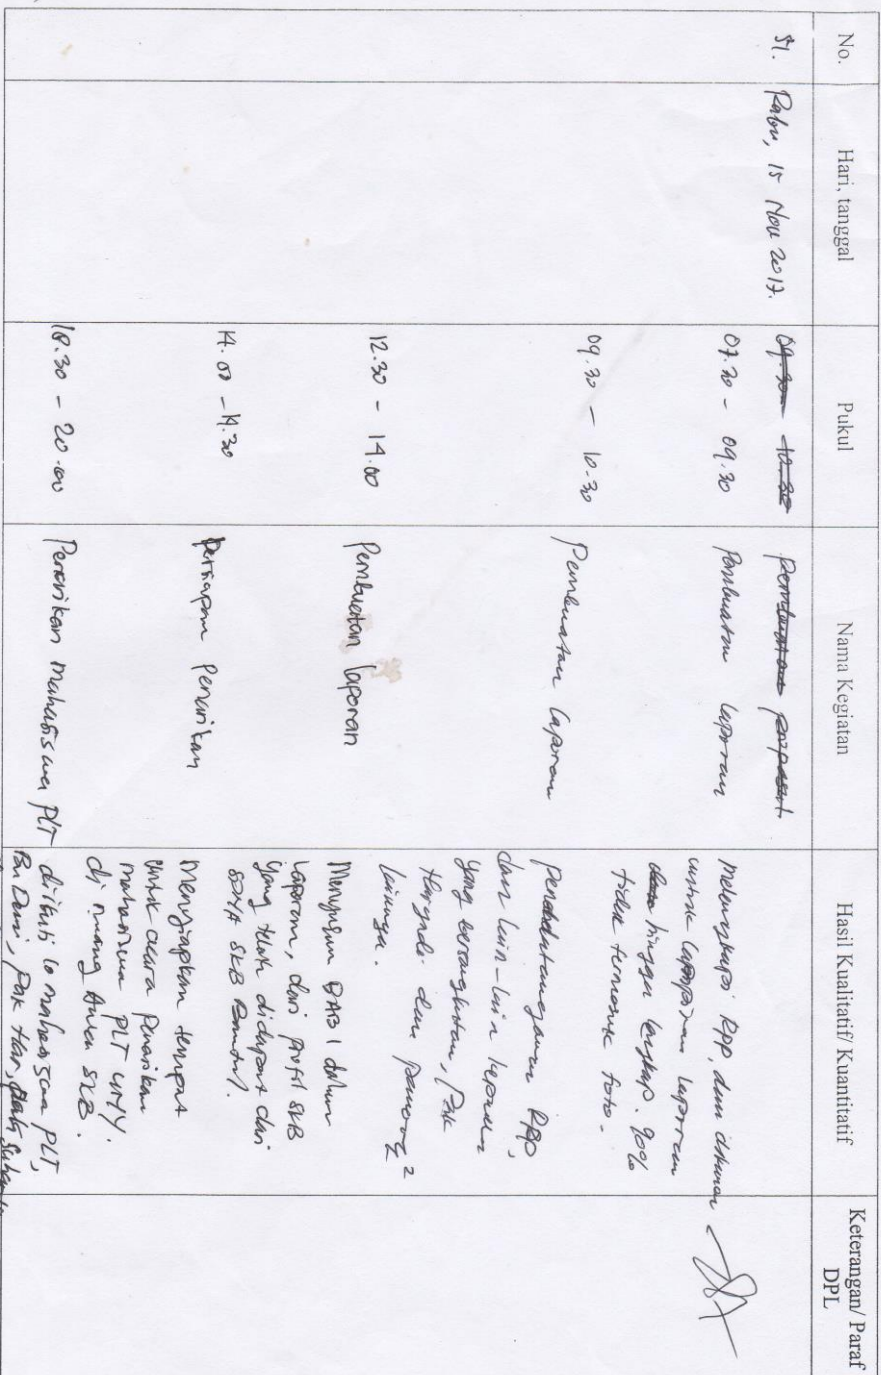 No.
Hari, tanggal
Pukul
Nama Kegiatan
Hasil Kualitatif/ Kuantitatif
Keterangan/ Paraf
DPL
51.
Rabu, 15 Nov 2017.
09.30 - 10.30
07.30 - 09.30
Pembuatan laporan
melengkapi RPP, dan
untuk laporan
hingga lengkap. 90%
tidak termasuk foto.
09.30 - 10.30
Pembuatan laporan
penandatanganan RPP,
dan lain-lain kepada
yang bersangkutan, Pak
dan pamong2
lainnya.
12.30 - 14.00
Pembuatan laporan
Menyusun BAB I dalam
laporan, dari profil SKB
yang telah didapat dari
SKB Bantul.
14.00 - 14.30
Persiapan Penarikan
Menyiapkan tempat
untuk acara Penarikan
mahasiswa PLT UNY.
di ruang SKB.
18.30 - 20.00
Penarikan mahasiswa PLT
diikuti 10 mahasiswa PLT,
Bu Dewi, Pak Har,